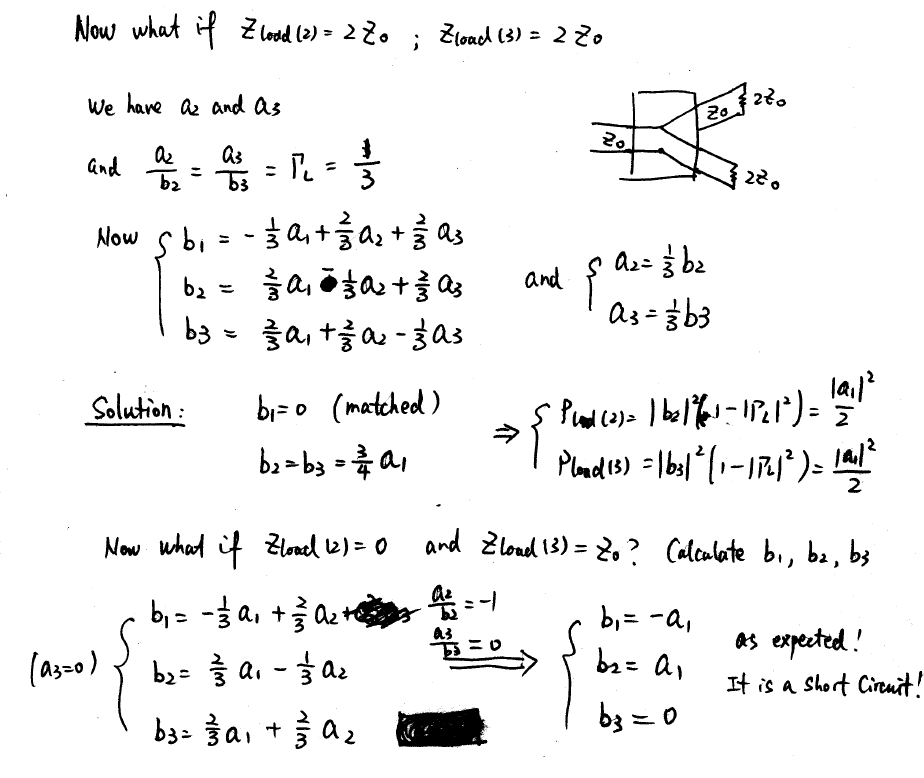 Now what if Zload(2) = 2Z0 ; Zload(3) = 2Z0
We have a2 and a3
and a2/b2 = a3/b3 = ΓL = 1/3
Z0 Z0 2Z0 2Z0
Now { b1 = -1/3 a1 + 2/3 a2 + 2/3 a3
b2 = 2/3 a1 - 1/3 a2 + 2/3 a3
b3 = 2/3 a1 + 2/3 a2 - 1/3 a3
and { a2 = 1/3 b2
a3 = 1/3 b3
Solution: b1 = 0 (matched)
b2 = b3 = 3/4 a1
⇒ { Pload(2) = |b2|²(1 - |ΓL|²) = |a1|²/2
Pload(3) = |b3|²(1 - |ΓL|²) = |a1|²/2
Now what if Zload(2) = 0 and Zload(3) = Z0? Calculate b1, b2, b3
(a3=0) { b1 = -1/3 a1 + 2/3 a2
b2 = 2/3 a1 - 1/3 a2
b3 = 2/3 a1 + 2/3 a2
a2/b2 = -1
a3/b3 = 0
⇒ { b1 = -a1
b2 = a1
b3 = 0
as expected!
It is a short circuit!